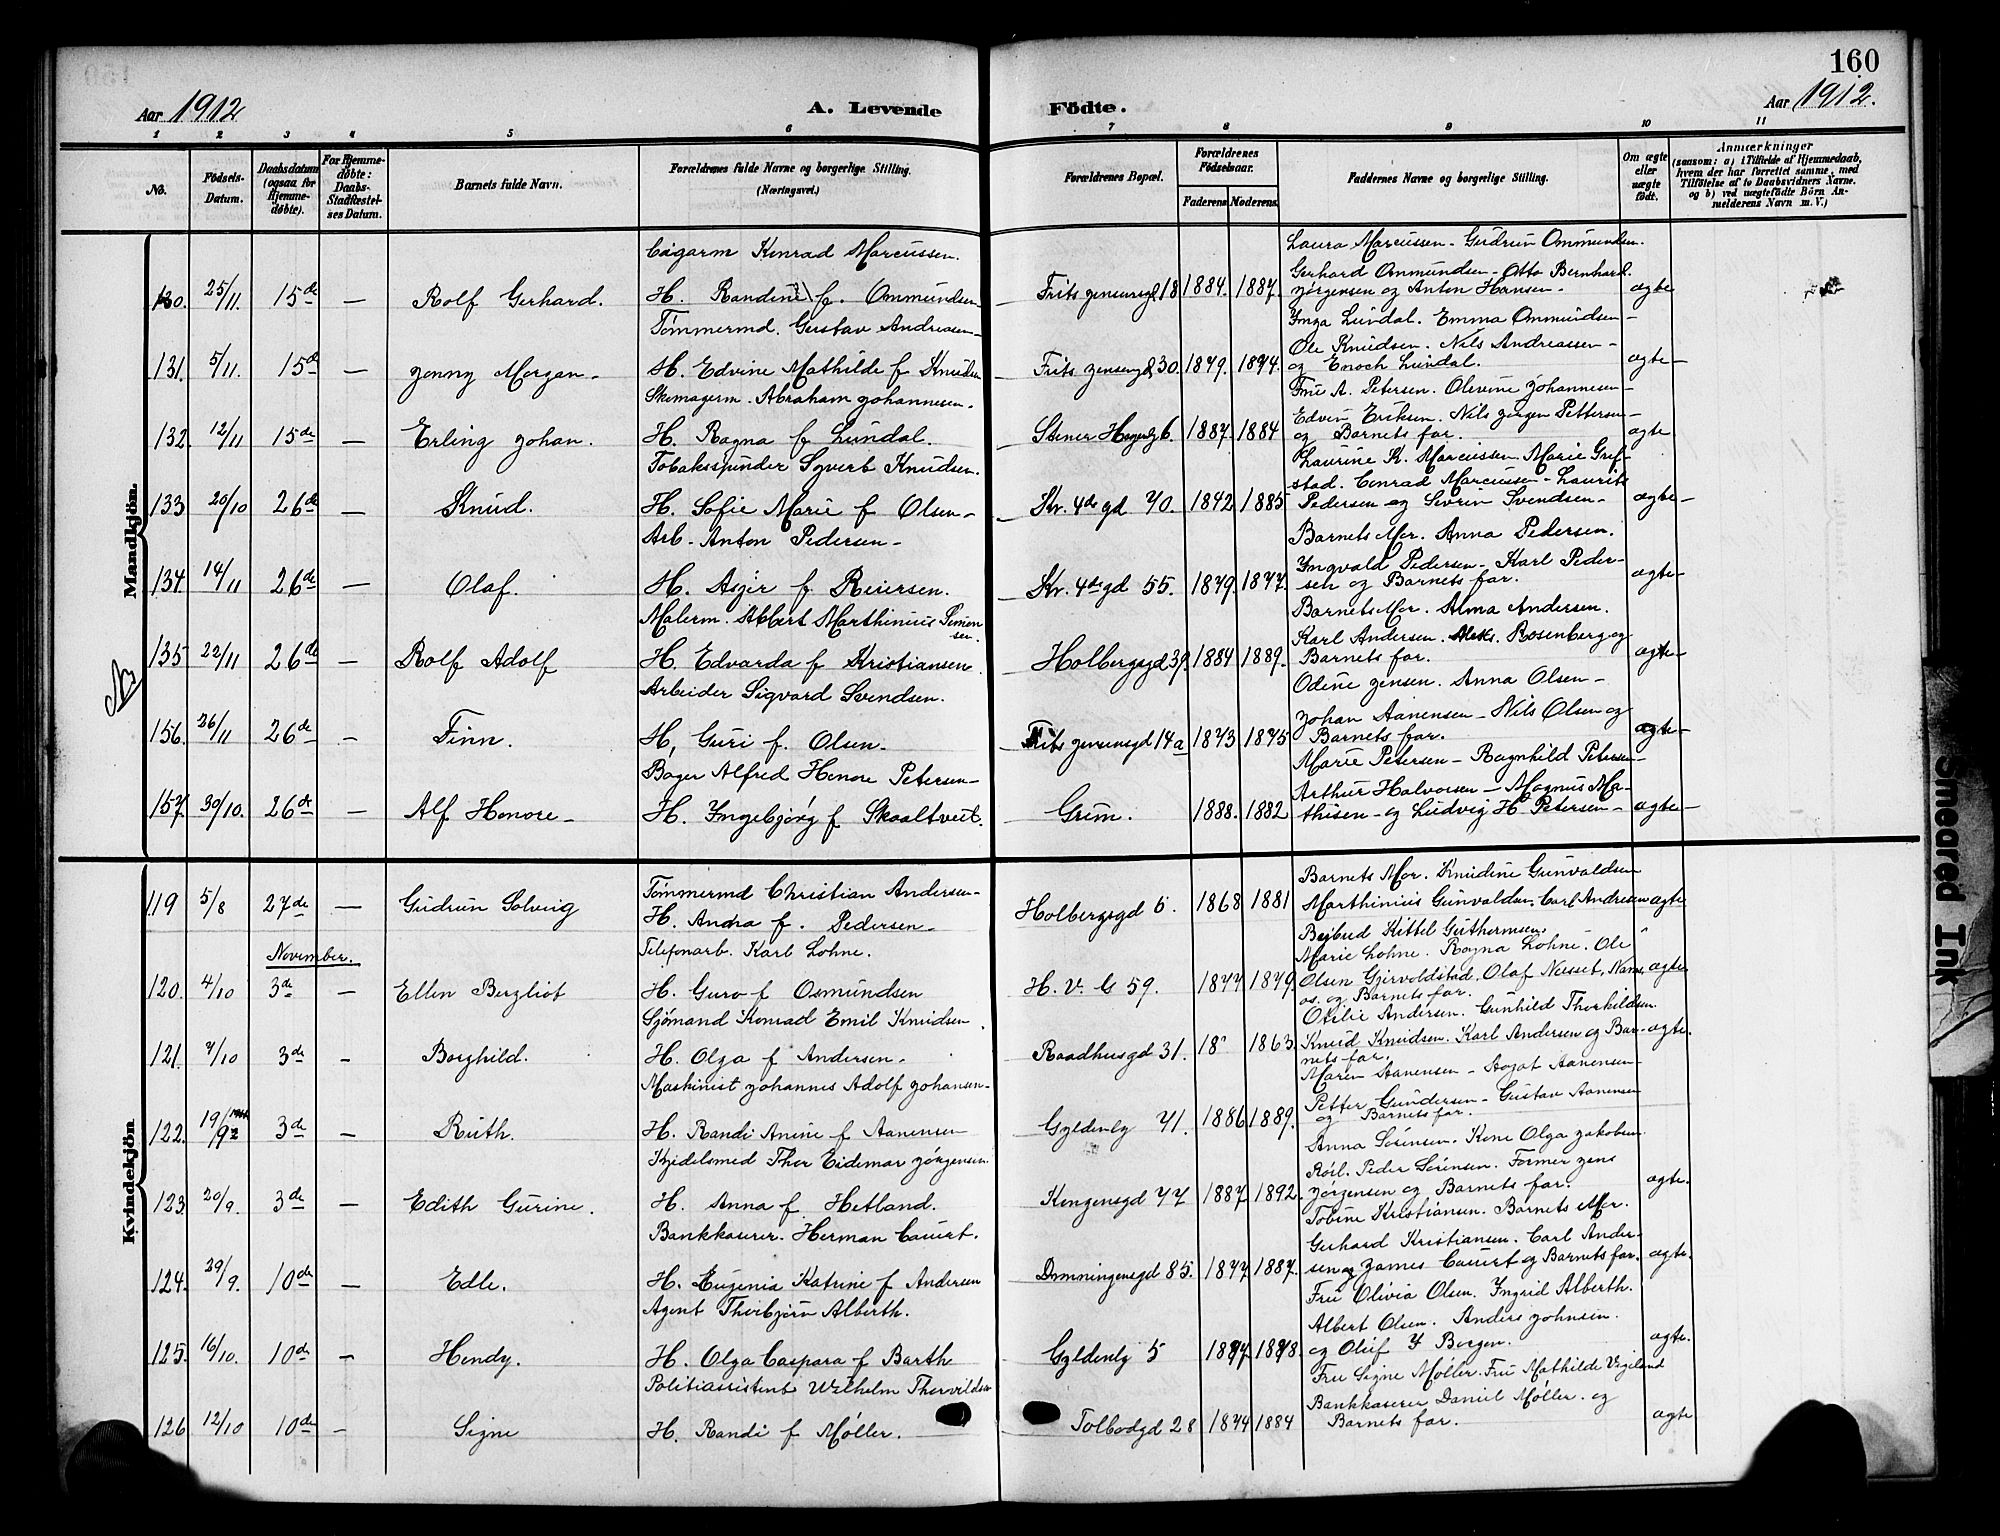 160
Aar 1912 A. Levende Födte. Aar 1912.
1 2 3 4 5 6 7 8 9 10 11
No. Födsels-Datum. Daabsdatum (ogsaa for Hjemme-døbte). For Hjemme-døbte: Daabs-Stadfæstel-ses Datum. Barnets fulde Navn. Forældrenes fulde Navne og borgerlige Stilling. (Næringsvei.) Forældrenes Bopæl. Forældrenes Födselsaar. Faderens Moderens. Faddernes Navne og borgerlige Stilling. Om ægte eller uægte födt. Anmærkninger (saasom: a) i Tilfælde af Hjemmedaab, hvem der har forrettet samme, med Tilföielse af to Daabsvidners Navne. og b) ved uægtefödte Börn An-melderens Navn m. V.)
Mandkjön.
Cigarm Konrad Marcussen. Laura Marcussen. Gudrun Ommundsen.
130. 25/11. 15de — Rolf Gerhard. H. Randine f. Ommundsen Frits Jensensgd 18 1884. 1887. Gerhard Ommundsen - Otto Bernhard Jørgensen og Anton Hansen. ægte
Tømmermd. Gustav Andreasen Inga Lundal. Emma Ommundsen
131. 5/11. 15de — Jenny Morgan. H. Edvine Mathilde f Knudsen Frits Jensengd 30. 1879. 1894. Ole Knudsen. Nils Andreassen og Enoch Lundal. ægte
Skomagerm. Abraham Johannesen. Frue A. Petersen. Olevine Johannesen
132. 12/11 15de — Erling Johan. H. Ragna f Lundal. Stener Hagengt 6. 1887 1884 Edvin Eriksen. Nils Jørgen Pettersen og Barnets far. ægte
Tobaksspinder Syvert Knudsen. Laurine K. Marcussen. Marie Gref-
133 20/10 26de — Knud. H. Sofie Marie f Olsen Kr. 4des gd 70. 1872 1885 stad. Conrad Marcussen - Laurits Pedersen og Sevrin Svendsen ægte
Arb. Anton Pedersen Barnets Mor. Anna Pedersen.
134 14/11 26de — Olaf. H. Asjer f Reiersen. Kr. 4des gd 55. 1879. 1877. Yngvald Pedersen - Karl Peder-sen og Barnets far. ægte
Malerm. Albert Marthinius Simon sen. Barnets Mor. Alma Andersen.
135 22/11 26de — Rolf Adolf H. Edvarda f Kristiansen Holbergsgd 39. 1884 1889. Karl Andersen. Aleks. Rosenberg og Barnets far. ægte
Arbeider Sigvard Svendsen. Odine Jensen. Anna Olsen
156. 26/11 26de — Finn. H. Guri f. Olsen Frits Jensensgd 14a 1873 1875 Johan Aanensen - Nils Olsen og Barnets far. ægte
Bager Alfred Honore Petersen Marie Petersen - Ragnhild Petersen
157. 30/10. 26de — Alf Honore H. Ingebjørg f Skaaltveit. Grim. 1888. 1882 Arthur Halvorsen - Magnus Ma-thisen og Ludvig H Petersen ægte
Kvindekjön
Tømmermd Christian Andersen Barnets Mor. Knudine Gunvaldsen
119 5/8 27de — Gudrun Solveig H. Andra f. Pedersen Holbergsgd 6. 1868 1881 Marthinius Gunvaldsen. Carl Andresen ægte
November. Telefonarb. Karl Lohne. Marie Lohne. Ragna Lohne. Ole
120. 4/10 3de — Ellen Bergliot H. Guro f Osmundsen H. V. G 59. 1877 1879 Olsen Gjervoldstad, Olaf Nesset, Nams-os. og Barnets far. ægte
Sjømand Konrad Emil Knudsen Otelie Andersen. Gunhild Thorkildsen
121. 7/10 3de — Borghild. H. Olga f Andersen Raadhusgd 31. 18" 1863. Knud Knudsen. Karl Andersen og Bar-nets far. ægte.
Maskinist Johannes Adolf Johansen Maren Aanensen - Aagot Aanensen
122. 19/9 3de — Ruth. H. Randi Anine f Aanensen Gyldenlg 41. 1886 1889. Petter Gundersen - Gustav Aanensen og Barnets far.
Kjedelsmed Thor Eidemar Jörgensen. Anna Sørensen. Kone Olga Jakobsen
123 20/9. 3de — Edith Gurine. H. Anna f. Hetland. Kongensgd 47 1887 1892. Peder Sørensen. Former Jens Jørgensen og Barnets far. ægte.
Bankkaserer. Herman Cauert. Tobine Kristiansen. Barnets Mor.
124. 29/9. 10de — Edle. H. Eugenia Katrine f Andersen Dronningensgd 85. 1877 1887. Gerhard Kristiansen. Carl Ander-sen og James Cauert og Barnets far. ægte
Agent Thorbjørn Alberth. Frue Olivia Olsen. Ingrid Alberth.
125. 16/10. 10de — Hendy. H. Olga Caspara f Barth Gyldenlg 5 Albert Olsen. Anders Johnsen. og Oluf I Borgen. ægte.
Politiassistent Wilhelm Thorvildsen Frue Signe Møller. Frue Mathilde Vigeland
126 12/10 10de — Signe H. Randi f Møller. Tolbodgd 28 1874 1884 Bankkaserer Daniel Møller. og Barnets far. ægte
Smeared Ink